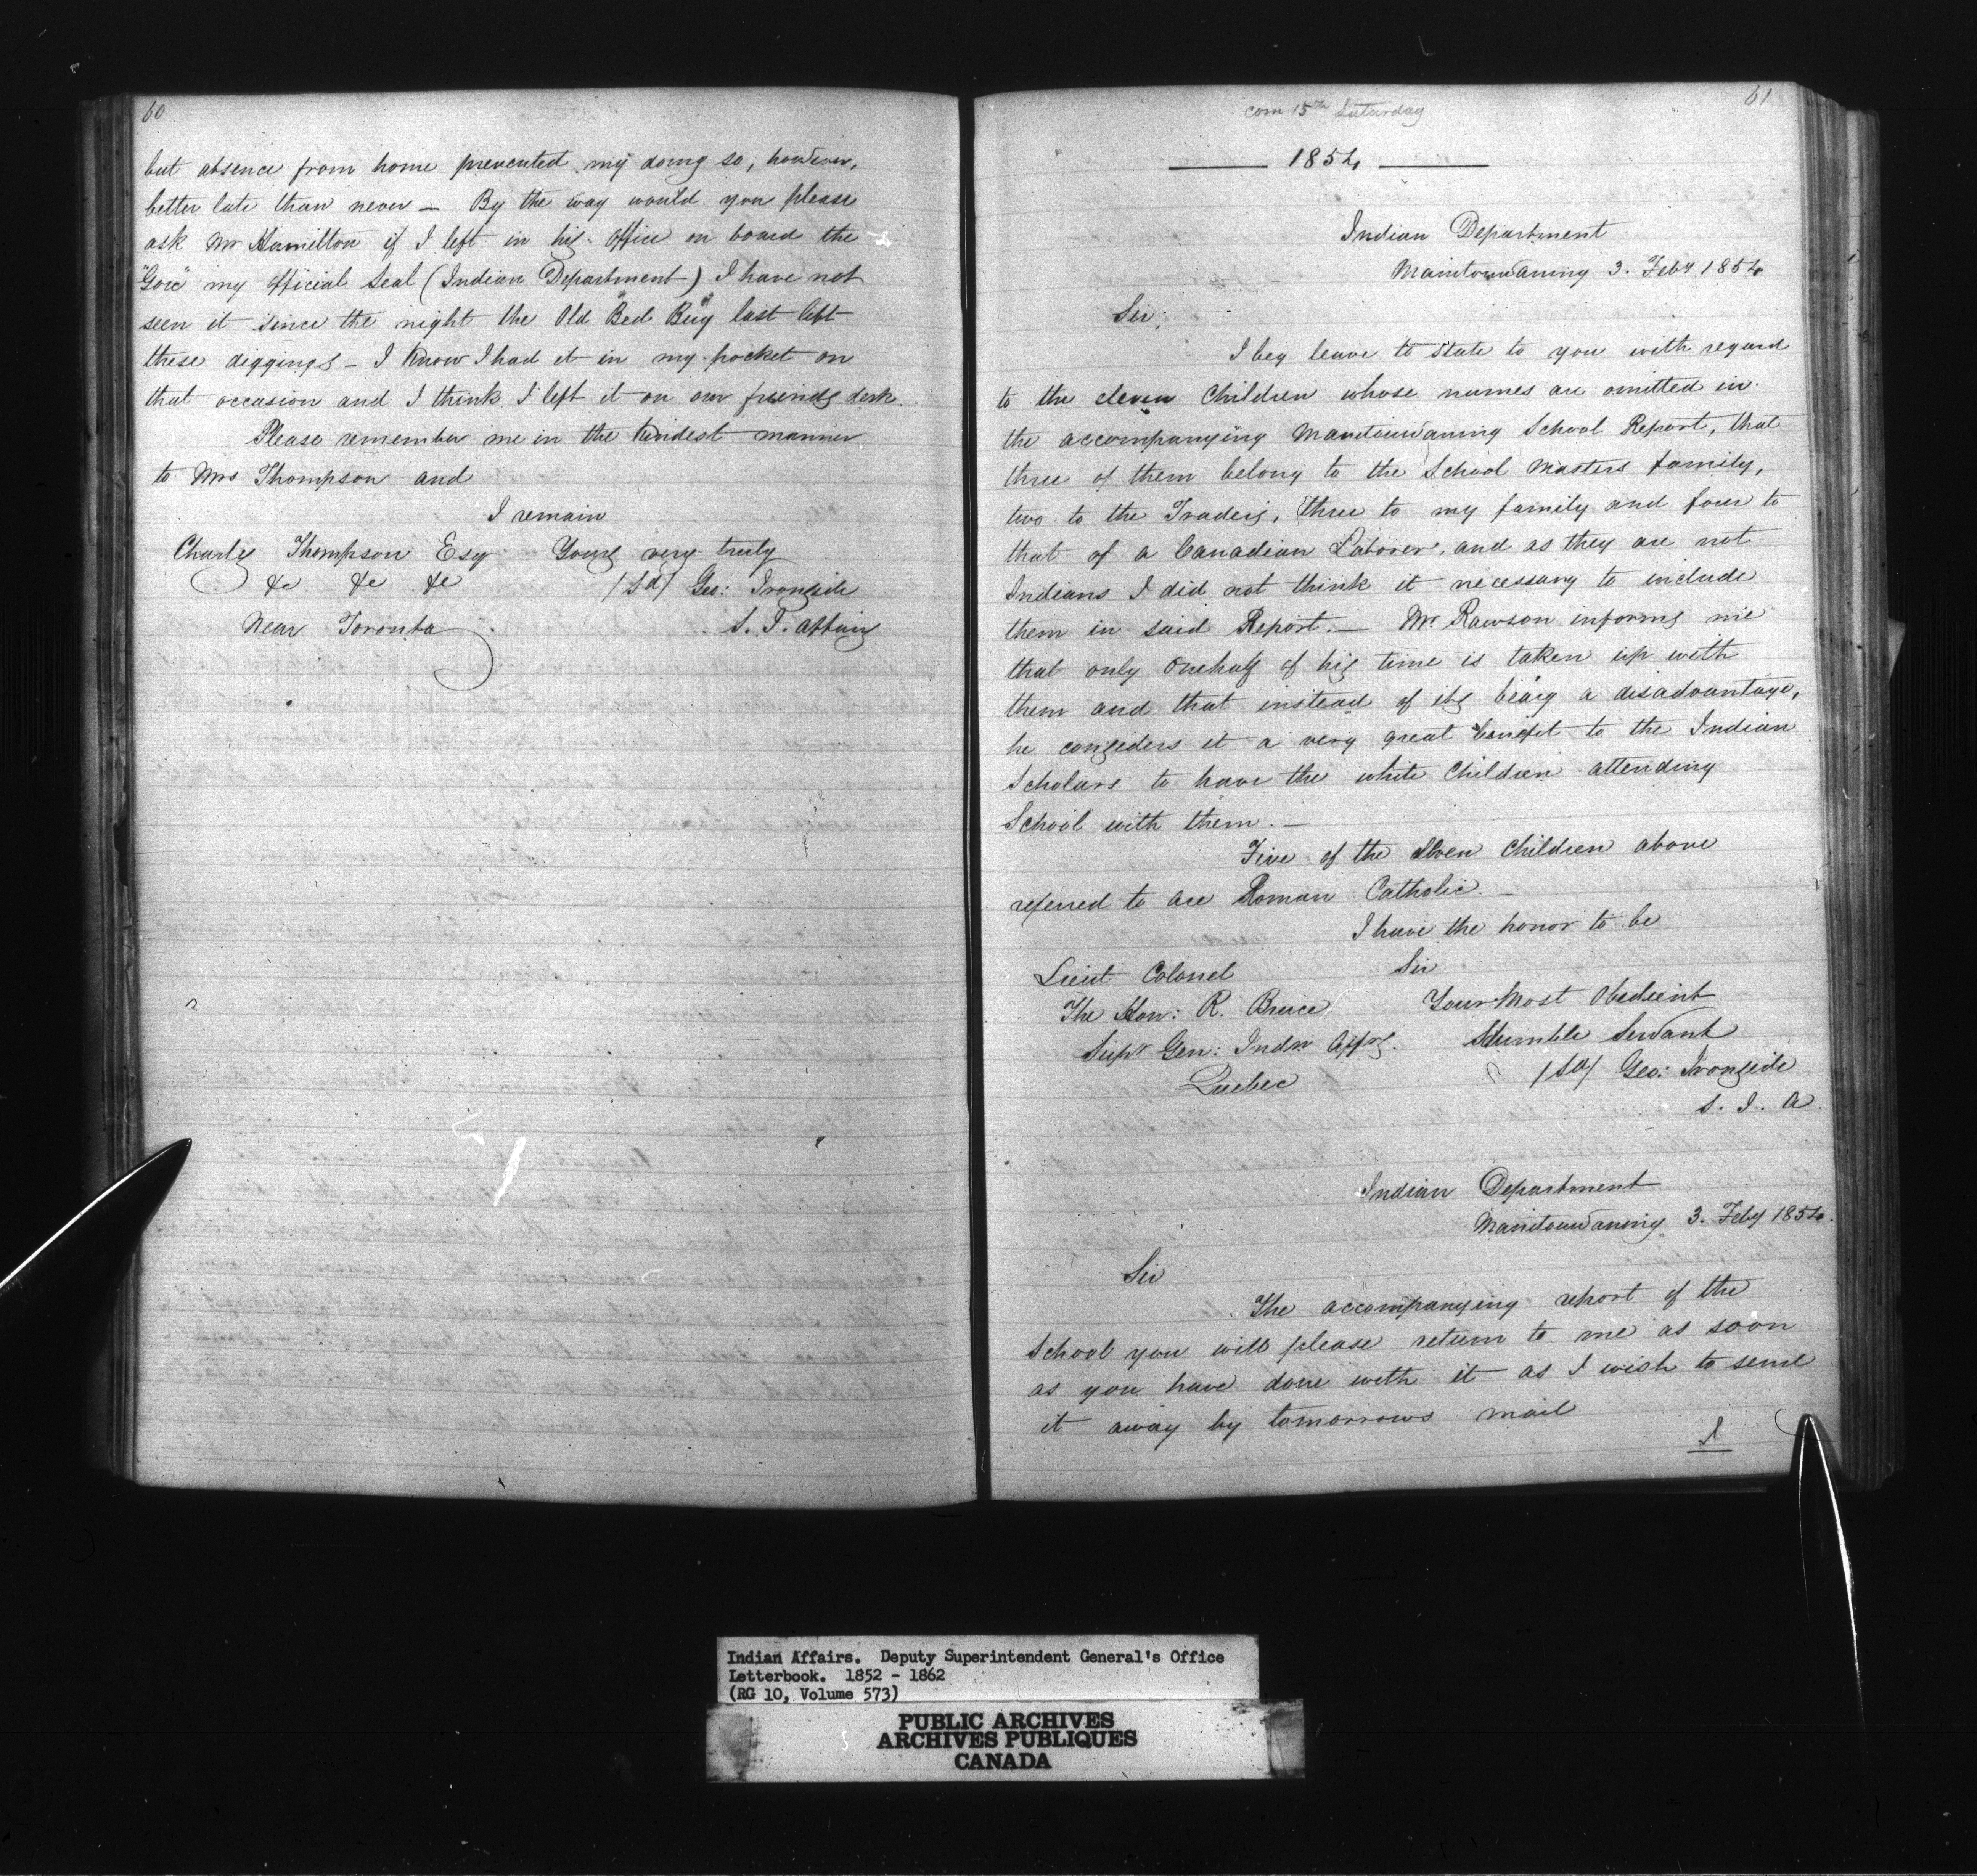 60
but absence from home prevented my doing so, however,
better late than never — By the way would you please
ask Mr Hamilton if I left in his office on board the
"Gore" my official Seal (Indian Department) I have not
seen it since the night the Old "Bed Bug" last left
these diggings — I know I had it in my pocket on
that occasion and I think I left it on our friends desk.
Please remember me in the kindest manner
to Mrs Thompson and
I remain
Charles Thompson Esq Yours very truly
&c &c &c /Sd/ Geo: Ironside
Near Toronto S. I. Affairs
61
com 15th Saturday
1854
Indian Department
Manitouwaning 3. Feby 1854
Sir;
I beg leave to state to you with regard
to the eleven Children whose names are omitted in
the accompanying Manitouwaning School Report, that
three of them belong to the School Masters family,
two to the Traders, three to my family and four to
that of a Canadian Laborer, and as they are not
Indians I did not think it necessary to include
them in said Report. — Mr. Rawson informs me
that only onehalf of his time is taken up with
them and that instead of its being a disadvantage,
he conseders it a very great benefit to the Indian
Scholars to have the white Children attending
School with them. —
Five of the eleven Children above
referred to are Roman Catholic. —
I have the honor to be
Lieut Colonel Sir
The Hon: R. Bruce Your Most Obedient
Supt Gen: Indn Affrs. Humble Servant
Quebec /Sd/ Geo: Ironside
S. I. A.
Indian Department
Manitouwaning 3. Feby 1854.
Sir
The accompanying report of the
School you will please return to me as soon
as you have done with it as I wish to send
it away by tomorrows mail
I
Indian Affairs. Deputy Superintendent General's Office
Letterbook. 1852 - 1862
(RG 10, Volume 573)
PUBLIC ARCHIVES
ARCHIVES PUBLIQUES
CANADA